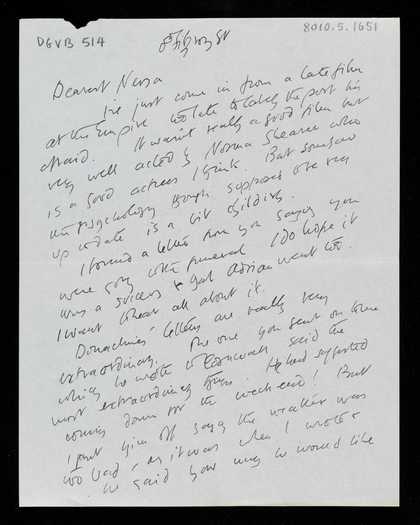 DGVB 514
8010.5.1651
8 Fitzroy St
Dearest Nessa
I've just come in from a late film
at the Empire too late to catch the post I'm
afraid. It wasn't really a good film but
very well acted by Norma Shearer who
is a good actress I think. But somehow
the psychology though supposed to be very
up to date is a bit childish.
I found a letter from you saying you
were going to the funeral I do hope it
was a success & glad Adrian went too.
I want to hear all about it.
letters are really very
extraordinary. The one you sent on to me
which he wrote to Cornwall said the
most extraordinary things. He had suggested
coming down for the week-end! But
I put him off saying the weather was
too bad, as it was when I wrote &
he said how he would like